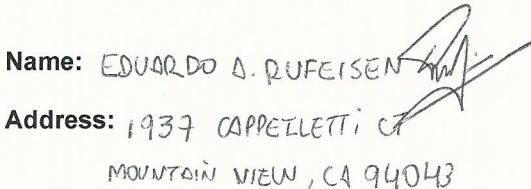 Name: EDUARDO A. RUFEISEN
Address: 1937 CAPPELLETTI CT
MOUNTAIN VIEW, CA 94043